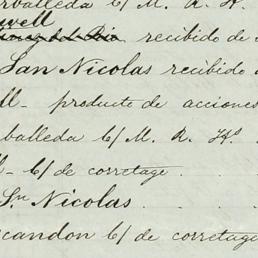 rballeda c/ M. R. H
well
recibido de
San Nicolas recibido
ll - producto de acciones
rballeda c/ M. R. Hos
l - c/ de corretage
Sn Nicolas
scandon c/ de corretage